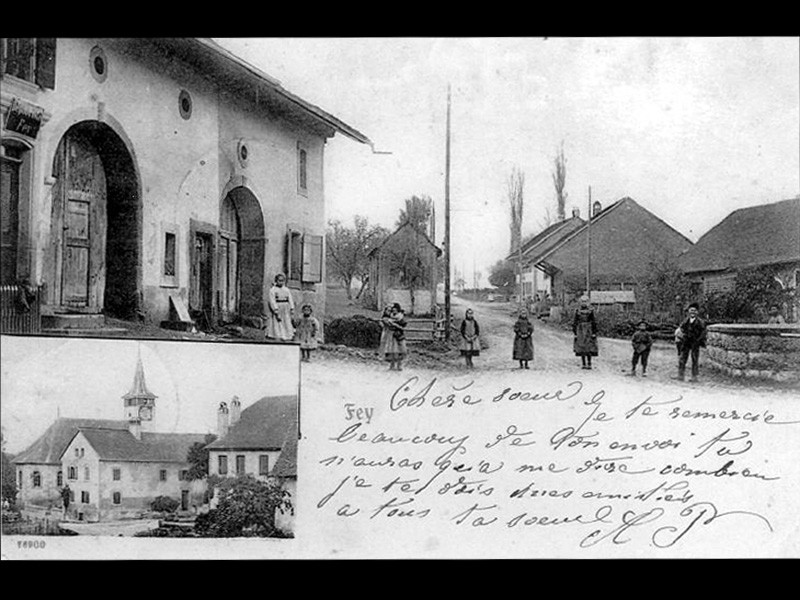 Fey
Chère soeur Je te remercie
beaucoup de ton envoi tu
n'auras qu'a me dire combien
je te dois mes amitiés
a tous ta soeur
14900